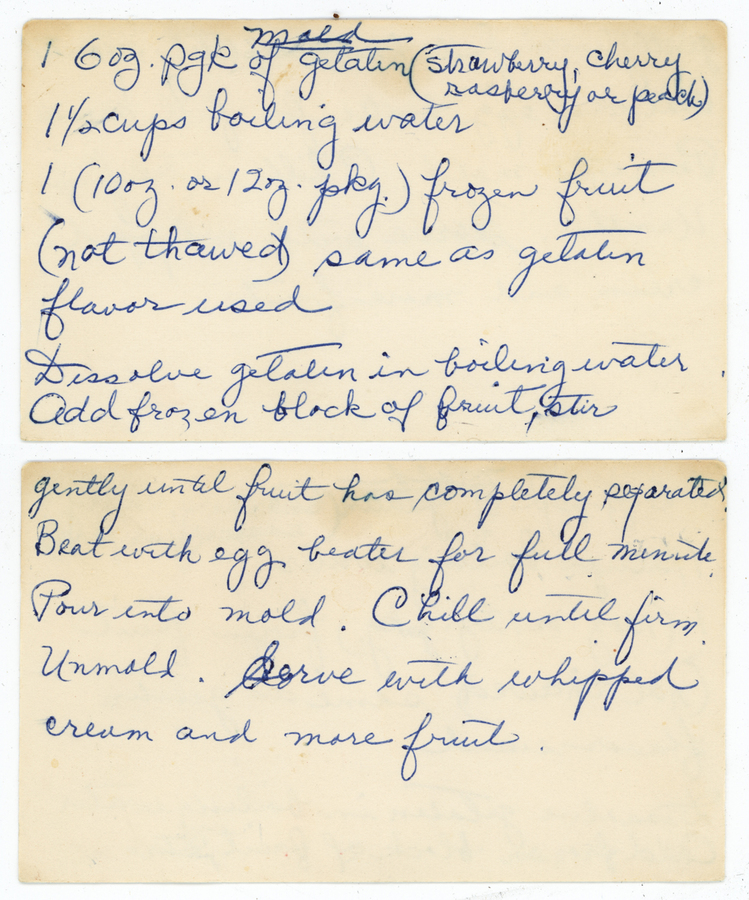 Mold
1 6oz. pgk of gelatin (strawberry, cherry
rasperry or peach)
1 1/2 cups boiling water
1 (10oz. or 12oz. pkg.) frozen fruit
(not thawed) same as gelatin
flavor used
Dissolve gelatin in boiling water.
Add frozen block of fruit, stir
gently until fruit has completely separated.
Beat with egg beater for full minute.
Pour into mold. Chill until firm.
Unmold. Serve with whipped
cream and more fruit.